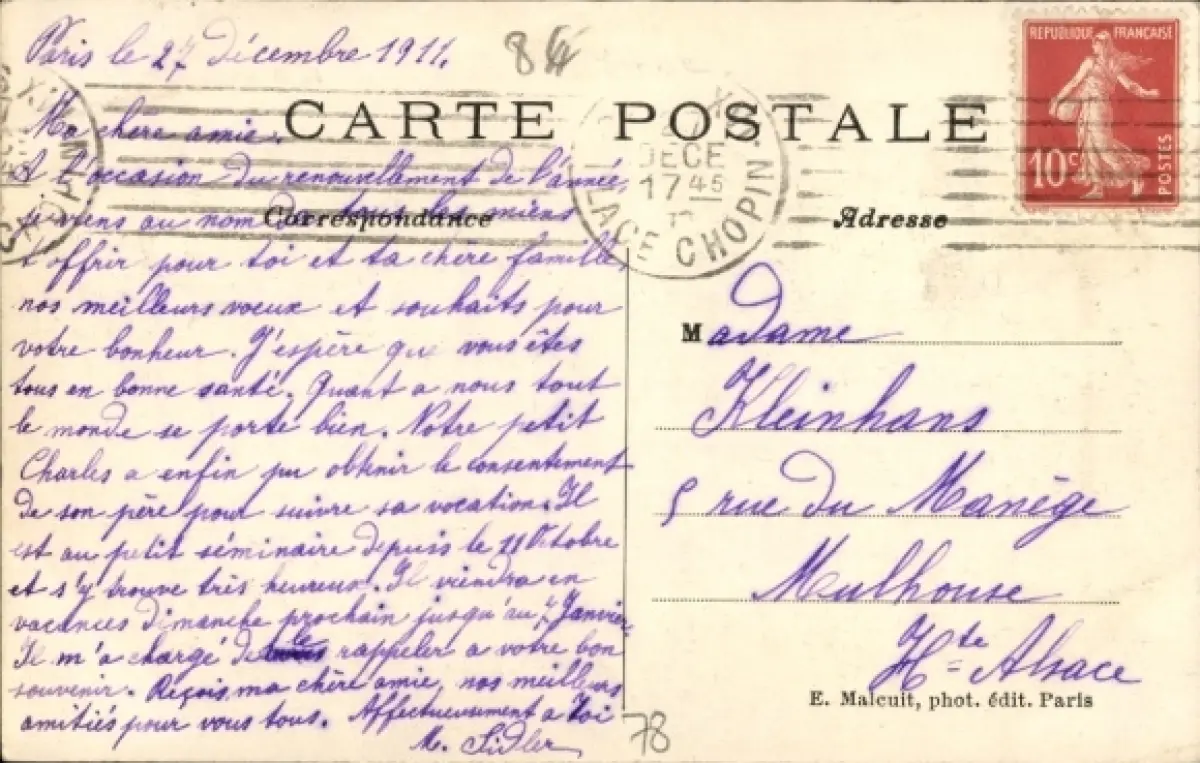 Paris le 27 décembre 1911.
84
CARTE POSTALE
REPUBLIQUE FRANÇAISE
10c
POSTES
DECE
17 45
PLACE CHOPIN
Correspondance
Adresse
Ma chère amie.
A l'occasion du renouvellement de l'année,
je viens au nom de tous les miens
t'offrir pour toi et ta chère famille,
nos meilleurs voeux et souhaits pour
votre bonheur. J'espère que vous êtes
tous en bonne santé. Quant a nous tout
le monde se porte bien. Notre petit
Charles a enfin pu obtenir le consentement
de son père pour suivre sa vocation. Il
est au petit séminaire depuis le 11 Octobre
et s'y trouve très heureux. Il viendra en
vacances dimanche prochain jusqu'au 7 Janvier.
Il m'a chargé de le rappeler a votre bon
souvenir. Reçois ma chère amie, nos meilleurs
amitiés pour vous tous. Affectueusement a toi
M. Sidler
Madame
Kleinhans
5 rue du Manège
Mulhouse
Hte Alsace
E. Malcuit, phot. édit. Paris
78